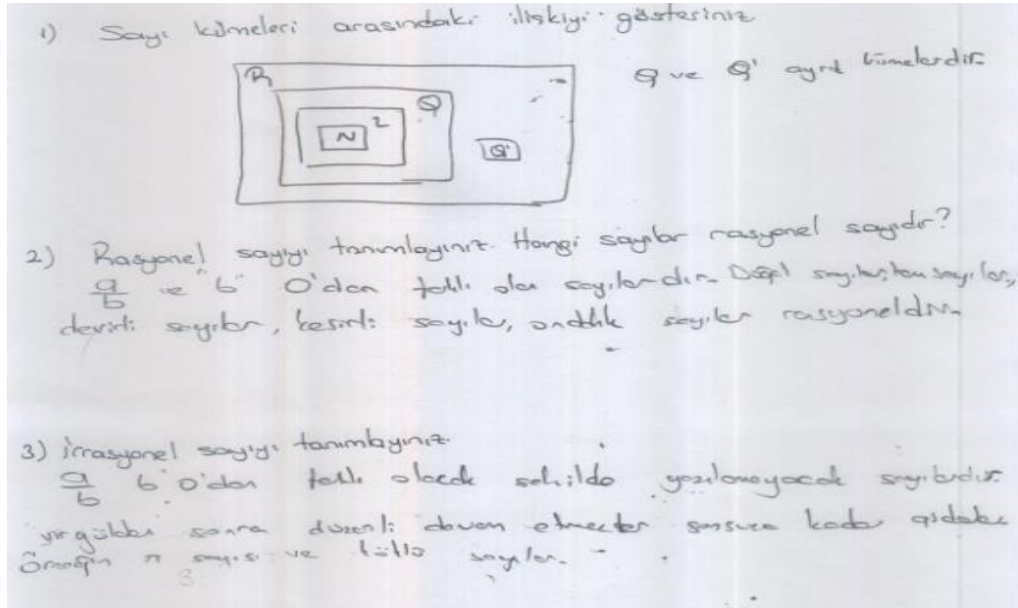 1) Sayı kümeleri arasındaki ilişkiyi gösteriniz
Q ve Q' ayrık kümelerdir.
R
Q
Z
N
Q'
2) Rasyonel sayıyı tanımlayınız. Hangi sayılar rasyonel sayıdır?
a/b ve "b" 0'dan farklı olan sayılardır. Doğal sayılar, tam sayılar,
devirli sayılar, kesirli sayılar, ondalık sayılar rasyoneldir.
3) İrrasyonel sayıyı tanımlayınız.
a/b b 0'dan farklı olacak şekilde yazılamayacak sayılardır.
virgülden sonra düzenli devam etmezler sonsuza kadar giderler
Örneğin π sayısı ve köklü sayılar.